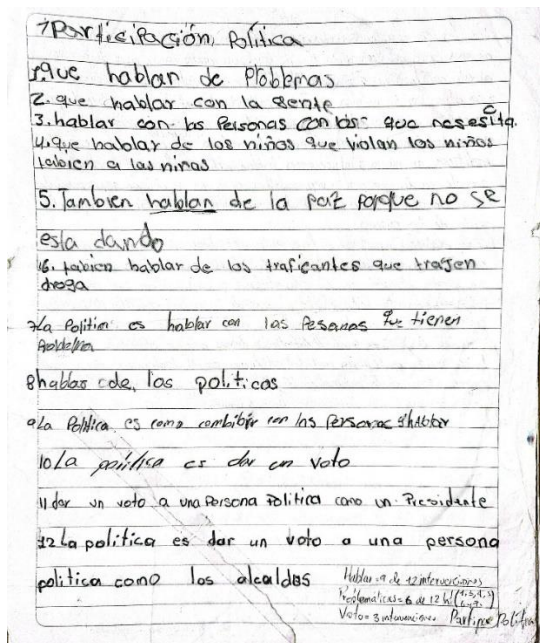 Participación Política
1. que hablan de Problemas
2. que hablar con la gente
3. hablar con las Personas con las que nesesita.
4. que hablar de los niños que violan los niños
tabien a las niñas
5. Tambien hablan de la paz porque no se
esta dando
6. tabien hablar de los traficantes que trajen
droga
7 la Politica es hablar con las Pesonas que tienen
8 hablar de los politicos
9 La Politica es como combibir con las Personas hablar
10 La politica es dar un voto
11 dar un voto a una Persona Politica como un Presidente
12 La politica es dar un voto a una persona
politica como los alcaldes
Hablar: 9 de 12 intervenciones
Problematicas = 6 de 12
Voto = 3 intervenciones